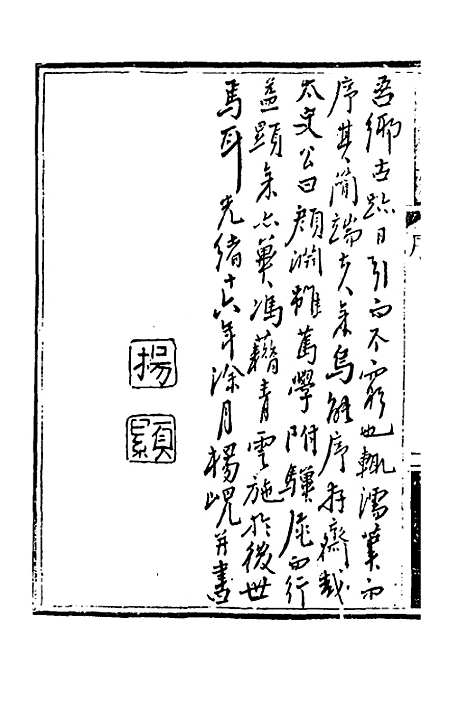 吾鄉古跡日引而不窮也輒濡葉而
序其簡端夫余烏能序存齋哉
太史公曰顏淵雖篤學附驥尾而行
益顯余亦冀馮藉青雲施於後世
焉耳光緒十六年涂月楊峴并書
楊
顯
序